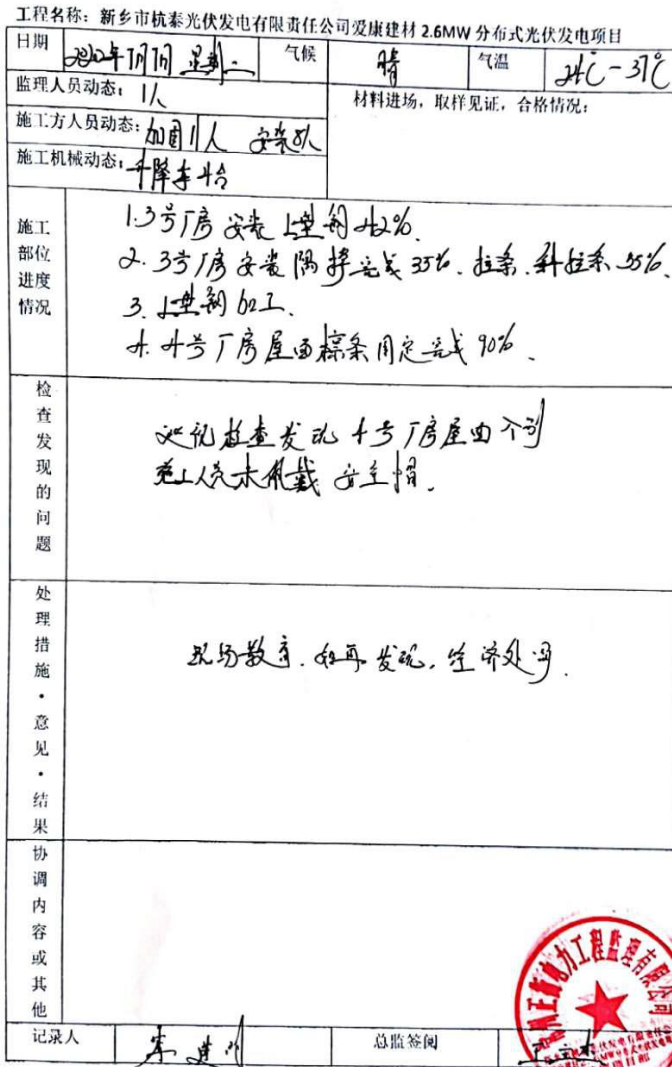 工程名称：新乡市杭泰光伏发电有限责任公司爱康建材 2.6MW 分布式光伏发电项目
日期 气候 晴 气温 24℃-37℃
监理人员动态：1人 材料进场，取样见证，合格情况：
施工方人员动态：加固11人 安装8人
施工机械动态：升降车4台
施工部位进度情况
1.3号厂房安装上型钢42%.
2.3号厂房安装隅撑完成35%.拉条.斜拉条35%.
3.上型钢加工.
4.4号厂房屋面檩条固定完成90%.
检查发现的问题
巡视检查发现4号厂房屋面个别
施工人员未佩戴安全帽.
处理措施·意见·结果
现场教育.如再发现,经济处罚.
协调内容或其他
记录人 总监签阅